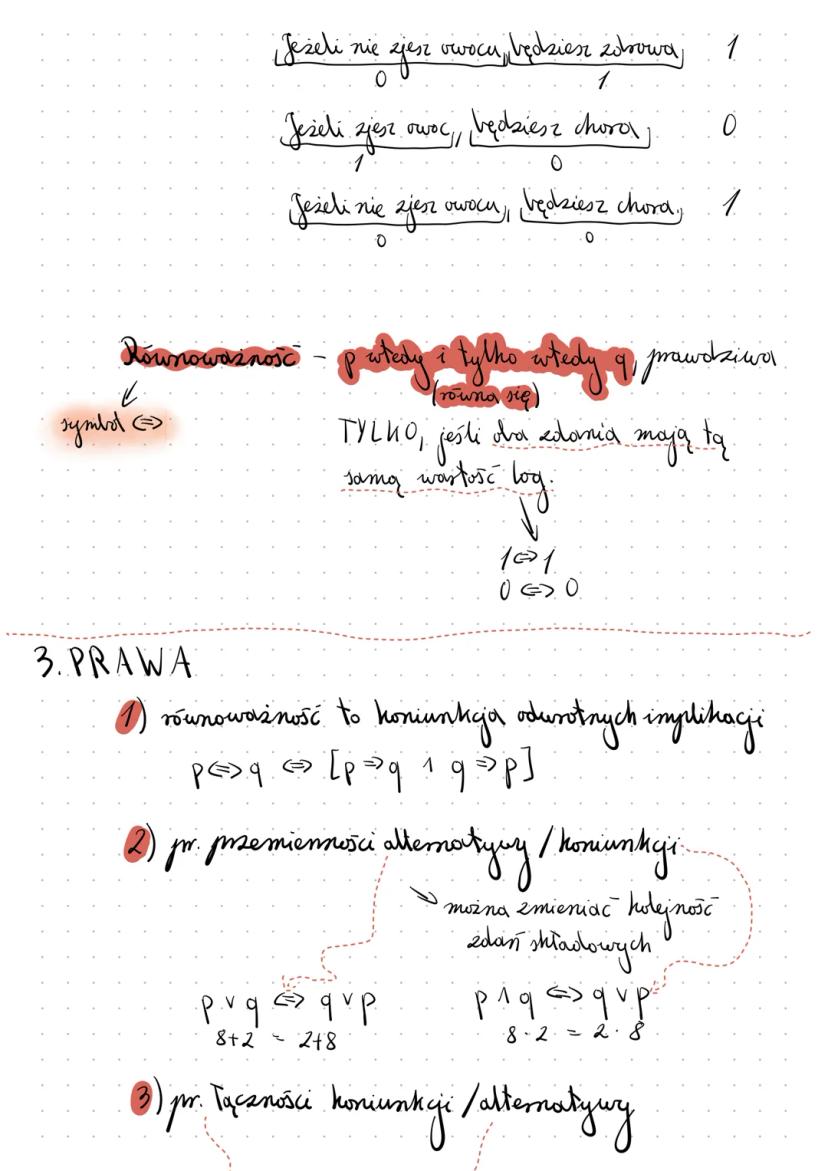 Jeżeli nie zjesz owocu, będziesz zdrowa, 1
0 1
Jeżeli zjesz owoc, będziesz chora, 0
1 0
Jeżeli nie zjesz owocu, będziesz chora, 1
0 0
Równoważność – p wtedy i tylko wtedy q, prawdziwa
(równa się)
symbol ⇔
TYLKO, jeśli oba zdania mają tą
samą wartość log.
1 ⇔ 1
0 ⇔ 0
3. PRAWA
1) równoważność to koniunkcja odwrotnych implikacji
p ⇔ q ⇔ [p ⇒ q ∧ q ⇒ p]
2) pr. przemienności alternatywy / koniunkcji
można zmieniać kolejność
zdań składowych
p ∨ q ⇔ q ∨ p p ∧ q ⇔ q ∨ p
8+2 = 2+8 8·2 = 2·8
3) pr. łączności koniunkcji / alternatywy